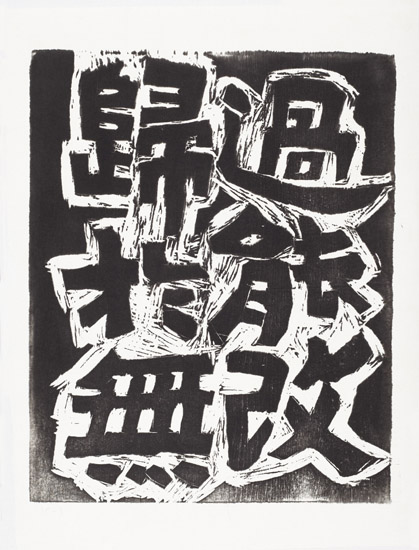 過能改
歸於無